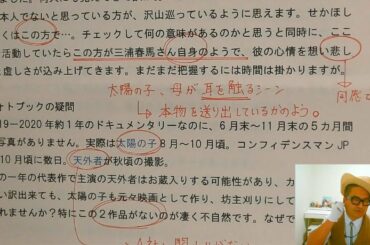 本人でないと思っている方が、沢山巡っているように思えます。せかほし
くはこの方で…。チェックして何の意味があるのかと思うと同時に、ここ
活動していたらこの方が三浦春馬さん自身のようで、彼の心情を想い悲し
虚しさが込み上げてきます。まだまだ把握するには時間は掛かりますが。
太陽の子、母が耳を触るシーン
↳本物を送り出しているかのよう。
ォトブックの疑問
19−2020年約1年のドキュメンタリーなのに、6月末〜11月末の5カ月間
写真がありません。実際は太陽の子8月〜10月頃。コンフィデンスマンJP
10月頃に数日。天外者が秋頃の撮影。
の一年の代表作で主演の天外者はお蔵入りする可能性があり、カ
い訳出来ても、太陽の子も元々映画として作り、坊主刈りにして
れませんか？特にこの2作品がないのが凄く不自然です。なぜで